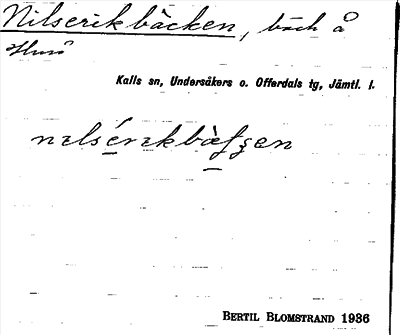 Nilserikbäcken, bäck å
Huså
Kalls sn, Undersåkers o. Offerdals tg, Jämtl. l.
nɪlsérɪkbàʃʒen
BERTIL BLOMSTRAND 1936